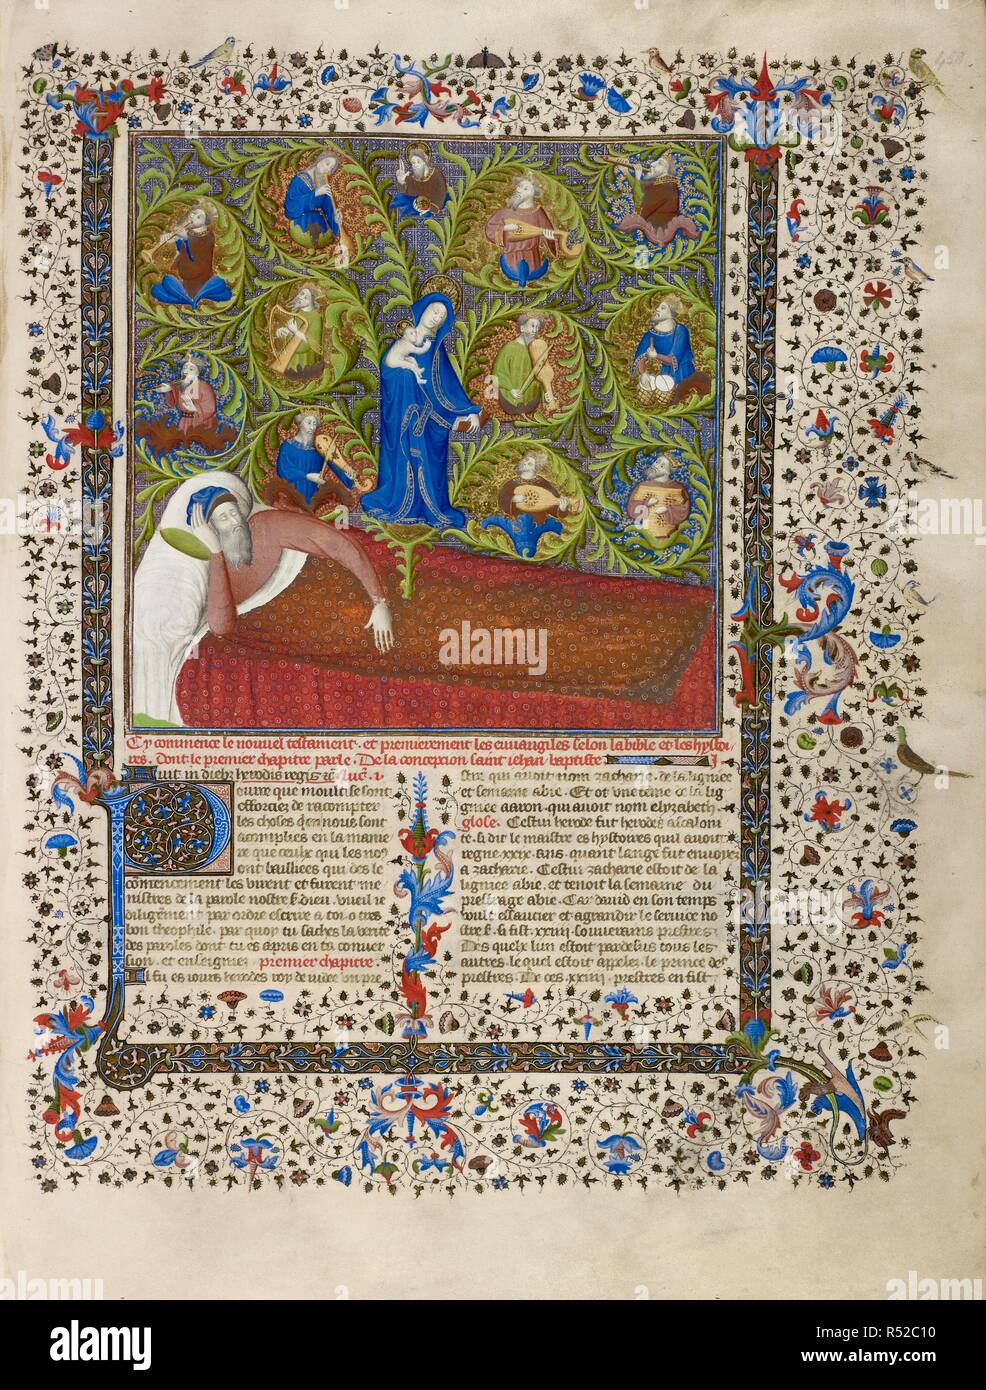 458
Cy commence le nouvel testament. et premierement les euuangiles selon la bible et les hystoi
res. Dont le premier chapitre parle. De la concepcion saint iehan baptiste
Fuit in diebz herodis regis &c. luc. i
ouure que moult se sont
efforciez de racompter
les choses qui en nous sont
acomplies en la manie
re que ceulx qui les nous
ont bailliees qui des le
comencement les virent et furent me
nistres de la parole nostre s. dieu. Vueil ie
diligemment par ordre escrire a toy o tres
bon theophile. par quoy tu saches la verite
des paroles dont tu es apris en ta conuer
sion. et enseignie. premier chapitre.
Il fu es iours herodes roy de iudee un pre
stre qui auoit nom zacharie. de la lignee
et semaine abie. Et ot vne feme de la lig
nee aaron. qui auoit nom elyzabeth.
glose. Cestui herode fut herodes ascaloni
te. si dit le maistre es hystoires qui auoit
regne .xxx. ans. quant lange fut enuoye
a zacharie. Cestui zacharie estoit de la
lignee abie. et tenoit la semaine du
prestrage abie. Car dauid en son temps
voult essaucier et agrandir le seruice no
stre s. si fist .xxiiii. souuerains prestres.
Des quelx lun estoit pardessus tous les
autres. le quel estoit appele le prince des
prestres. De ces .xxiiii. prestres en fist
alamy
a
alamy
Image ID: R52C10
www.alamy.com